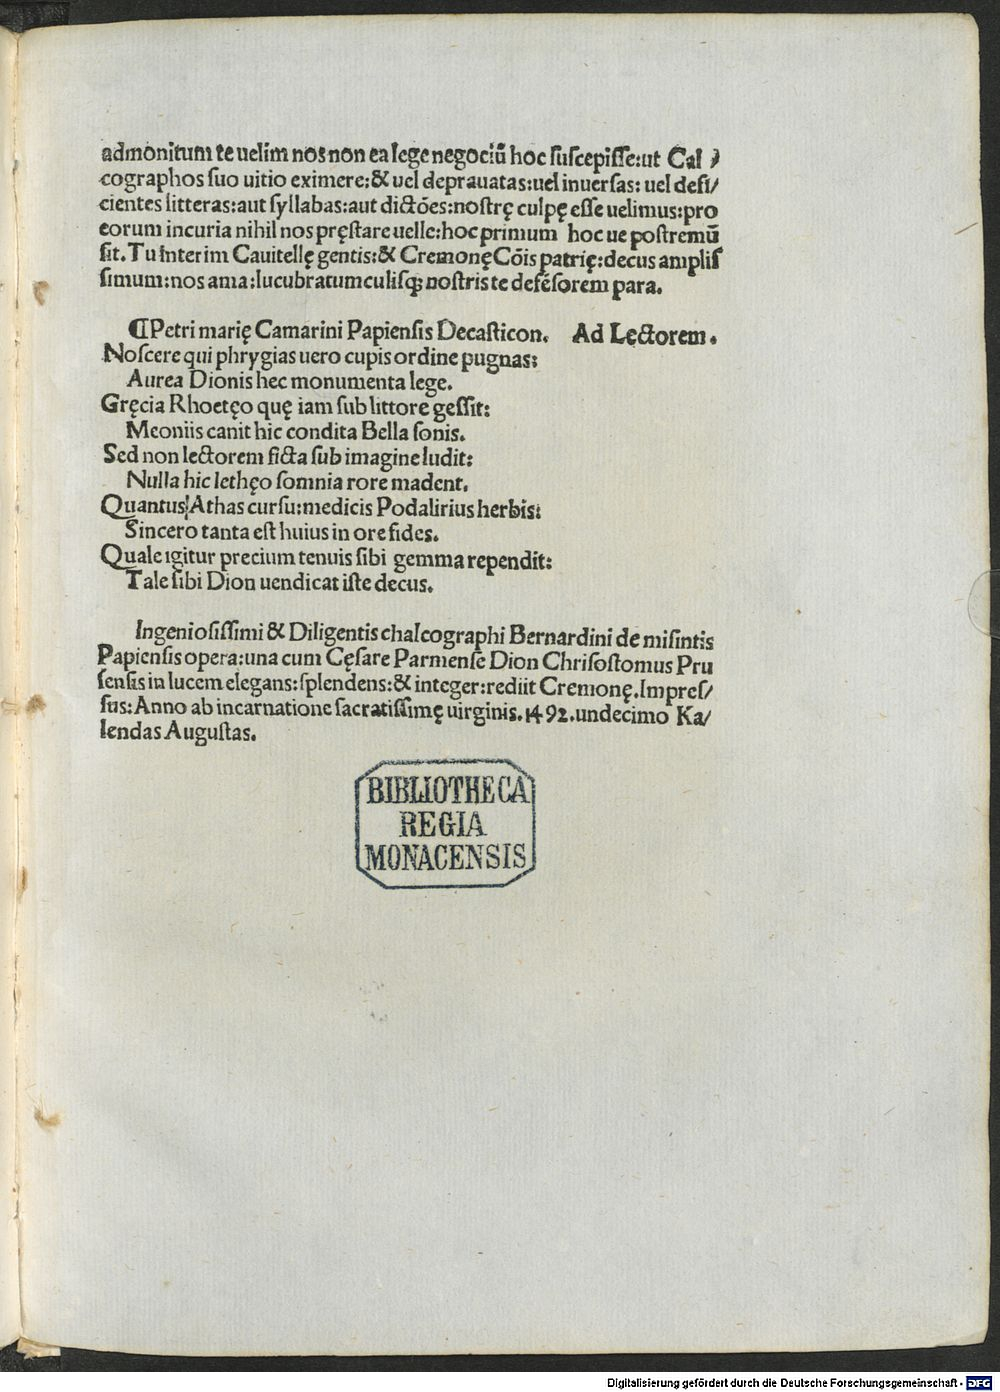 admonitum te uelim nos non ea lege negociũ hoc suscepisse:ut Cal
cographos suo uitio eximere:& uel deprauatas:uel inuersas: uel defi/
cientes litteras:aut syllabas:aut dictões:nostrę culpę esse uelimus:pro
eorum incuria nihil nos pręstare uelle:hoc primum hoc ue postremũ
sit.Tu interim Cauitellę gentis:& Cremonę Cõis patrię:decus amplis
simum:nos ama:lucubratumculisq; nostris te defẽsorem para.
¶Petri marię Camarini Papiensis Decasticon. Ad Lęctorem.
Noscere qui phrygias uero cupis ordine pugnas:
Aurea Dionis hec monumenta lege.
Gręcia Rhoetęo quę iam sub littore gessit:
Meoniis canit hic condita Bella sonis.
Sed non lectorem ficta sub imagine ludit:
Nulla hic lethęo somnia rore madent.
Quantus Athas cursu:medicis Podalirius herbis:
Sincero tanta est huius in ore fides.
Quale igitur precium tenuis sibi gemma rependit:
Tale sibi Dion uendicat iste decus.
Ingeniosissimi & Diligentis chalcographi Bernardini de misintis
Papiensis opera:una cum Cęsare Parmense Dion Chrisostomus Pru
sensis in lucem elegans:splendens:& integer:rediit Cremonę.Impres/
sus:Anno ab incarnatione sacratissimę uirginis.1492.undecimo Ka/
lendas Augustas.
BIBLIOTHECA
REGIA
MONACENSIS
Digitalisierung gefördert durch die Deutsche Forschungsgemeinschaft - DFG